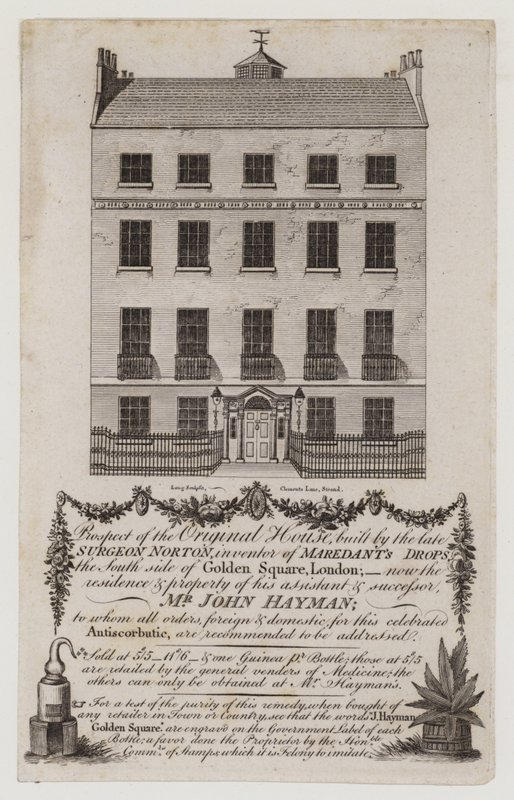 Long Sculpsit, Clements Lane, Strand.
Prospect of the Original House, built by the late
SURGEON NORTON, inventor of MAREDANT'S DROPS,
the South side of Golden Square, London; — now the
residence & property of his assistant & successor,
MR. JOHN HAYMAN;
to whom all orders, foreign & domestic, for this celebrated
Antiscorbutic, are recommended to be addressed.
Sold at 5/5 – 11/6 – & one Guinea pr. Bottle; those at 5/5
are retailed by the general venders of Medicine; the
others can only be obtained at Mr. Hayman's.
☞ For a test of the purity of this remedy, when bought of
any retailer in Town or Country, see that the words "J. Hayman
Golden Square" are engravd on the Government Label of each
Bottle; a favor done the Proprietor by the Honble.
Commrs. of Stamps, which it is Felony to imitate.